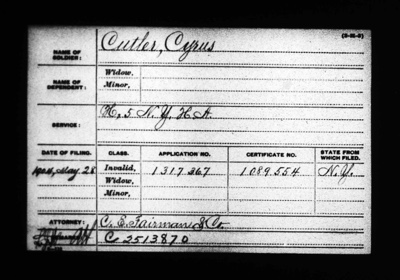 (3-15-3)
NAME OF SOLDIER: Cutler, Cyrus
NAME OF DEPENDENT: Widow,
Minor,
SERVICE: H, 5 N.Y. H.A.
DATE OF FILING. CLASS. APPLICATION NO. CERTIFICATE NO. STATE FROM WHICH FILED.
1904, May 28 Invalid, 1317367 1089554 N.Y.
Widow,
Minor,
ATTORNEY: C. E. Fairman & Co.
C 2513870